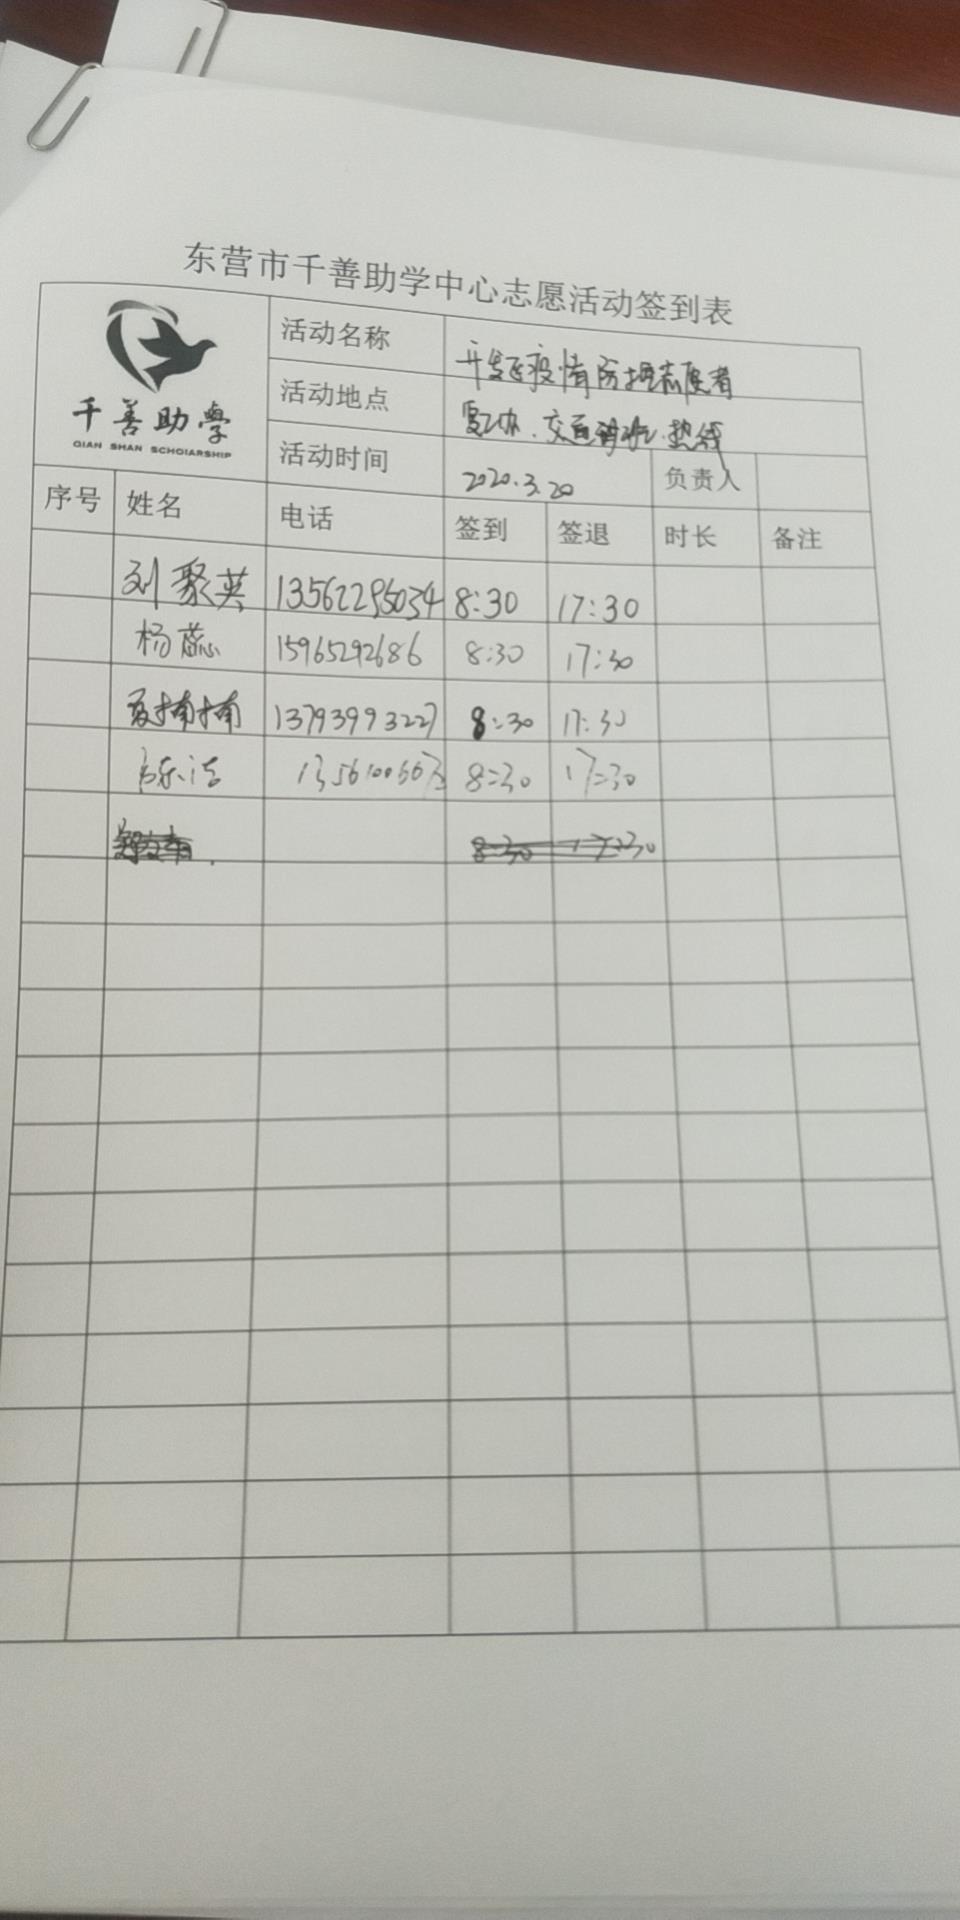 东营市千善助学中心志愿活动签到表
千善助學
QIAN SHAN SCHOLARSHIP
活动名称 开发区疫情防控志愿者
活动地点 复工办、交通 热线
活动时间 2020.3.20 负责人
序号 姓名 电话 签到 签退 时长 备注
刘聚英 13562295034 8:30 17:30
杨蕊 15965292686 8:30 17:30
夏楠楠 13793993227 8:30 17:30
8:30 17:30
8:30 17:30